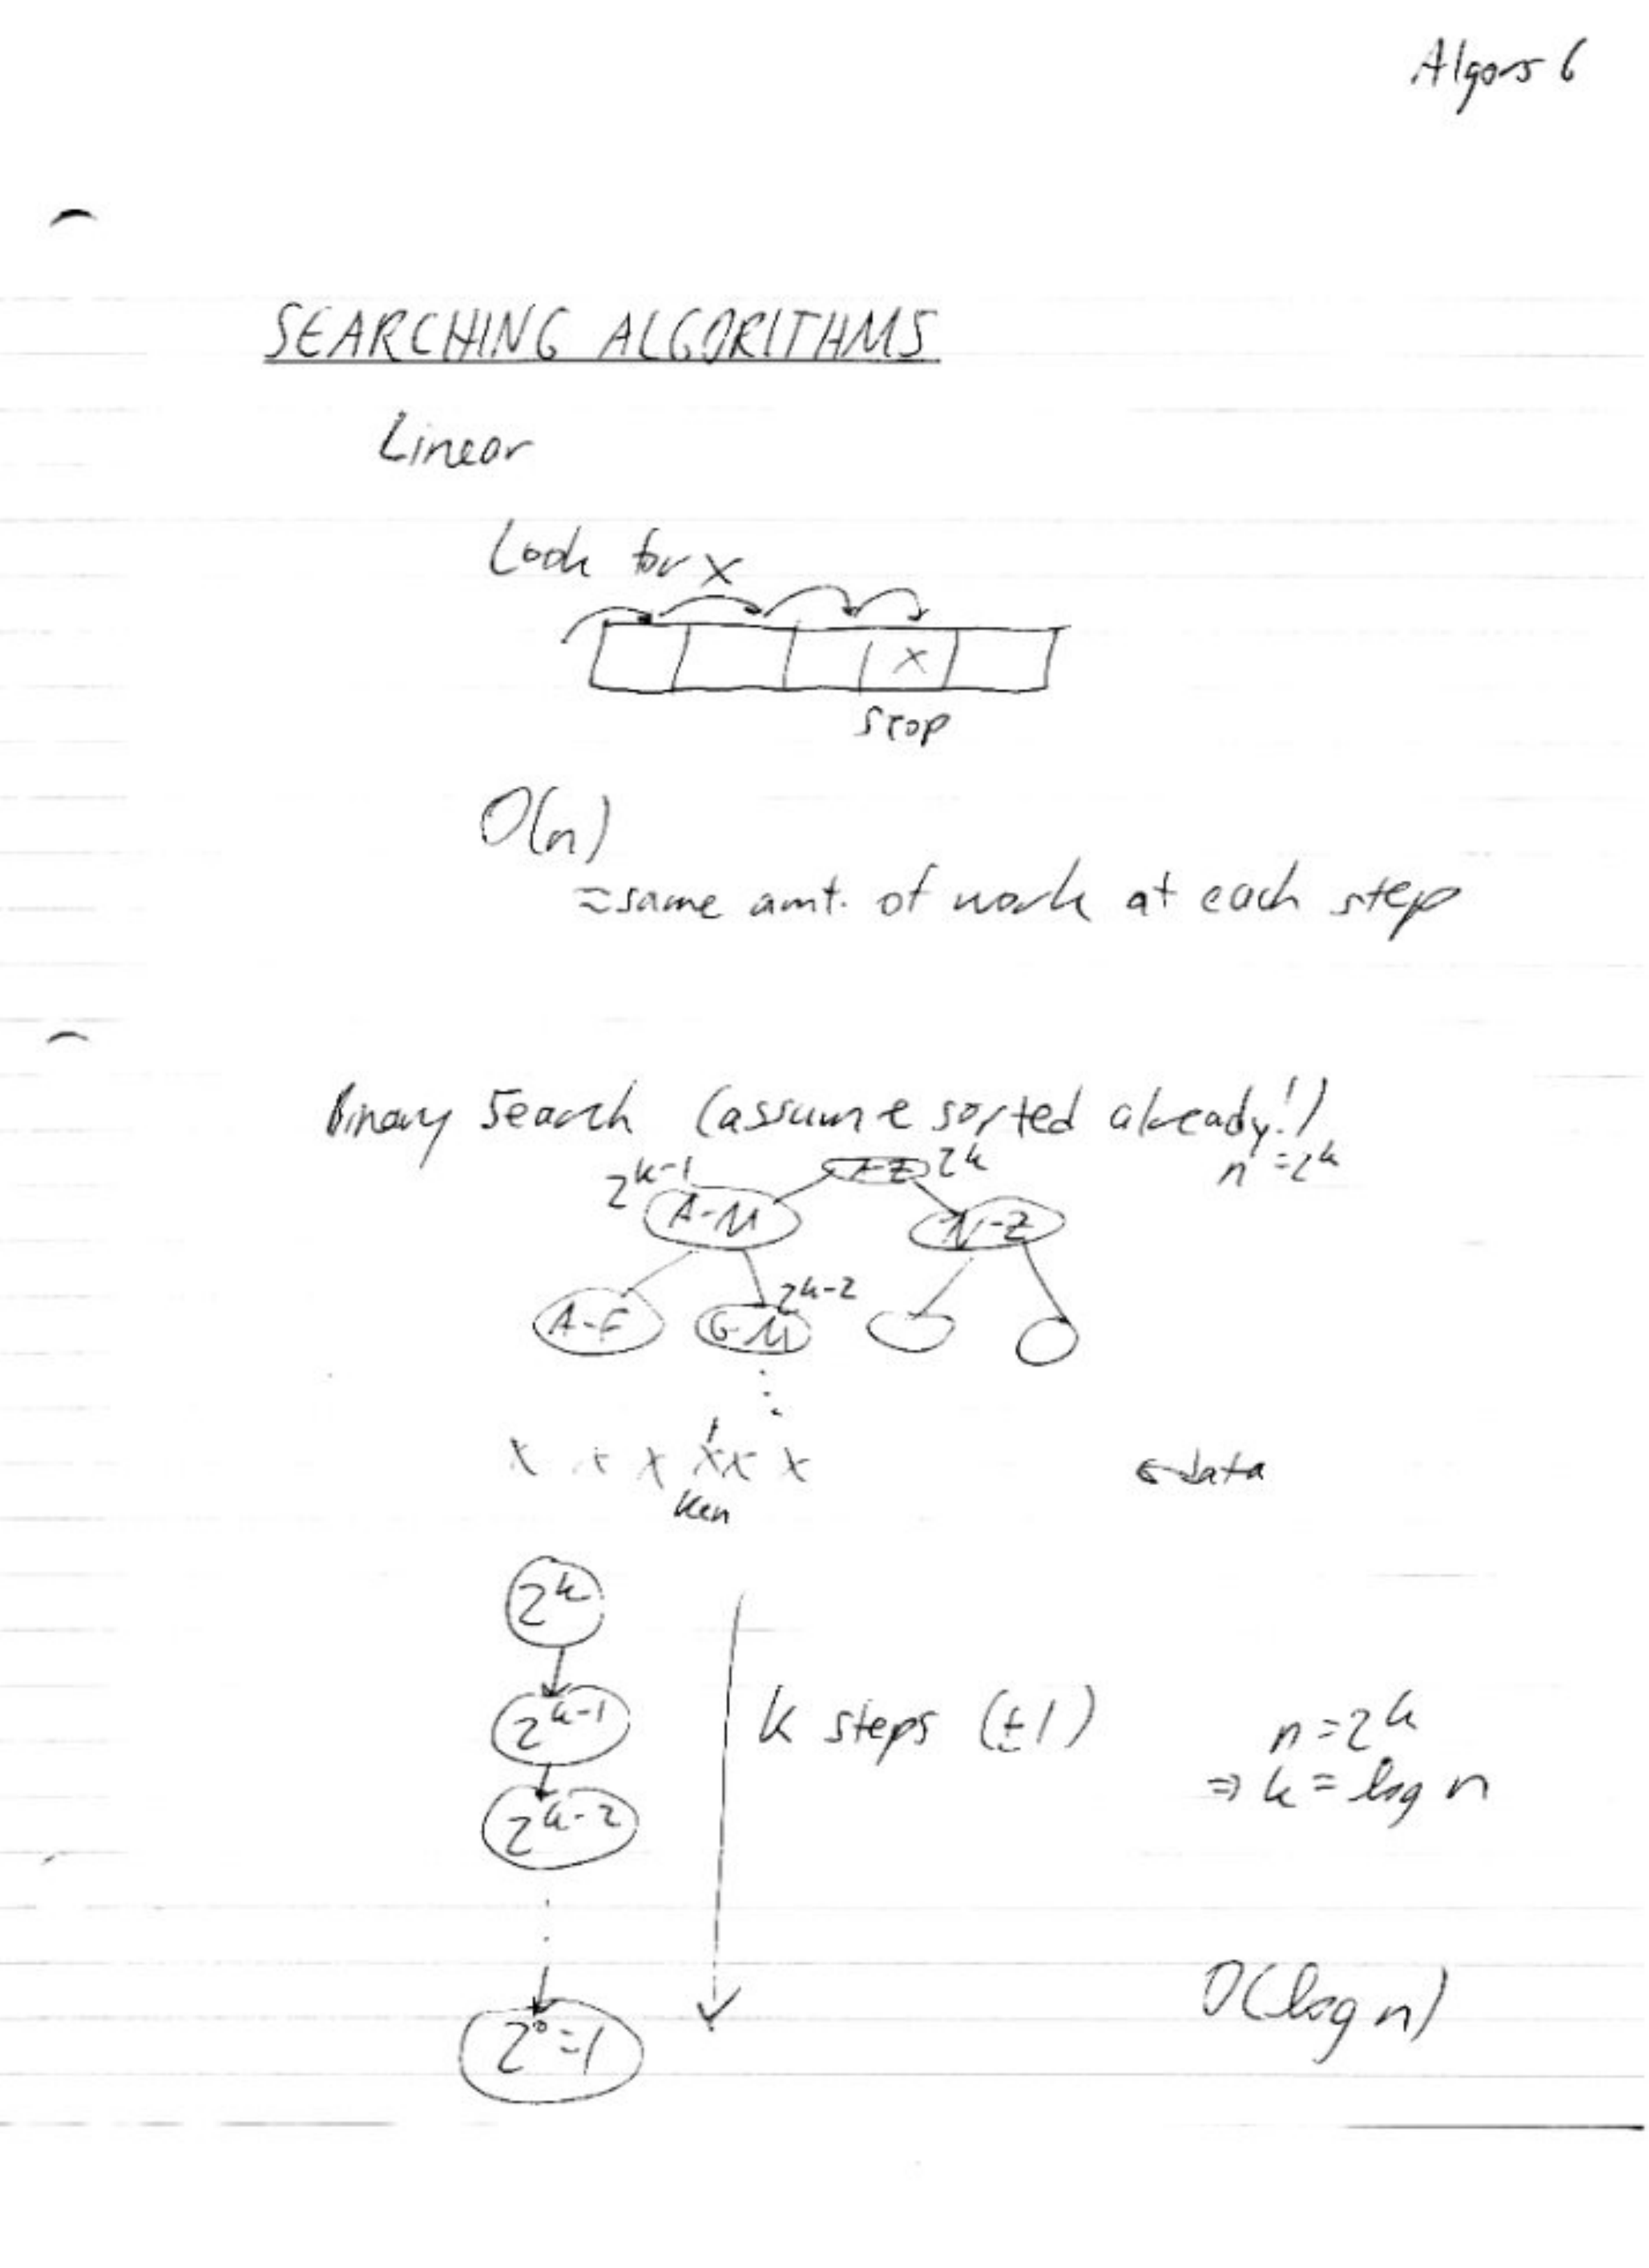 Algors 6
SEARCHING ALGORITHMS
Linear
Look for x
x
stop
O(n)
≈ same amt. of work at each step
Binary Search (assume sorted already!)
n = 2^k
A-Z 2^k
2^k-1 A-M N-Z
A-F G-M 2^k-2
x x x x x x
Ken
← data
2^k
2^k-1
k steps (±1)
n = 2^k
⇒ k = log n
2^k-2
2^0 = 1
O(log n)